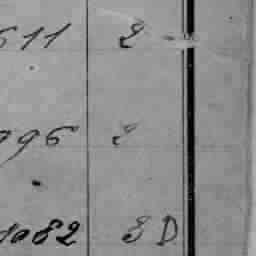 611 2
996 2
1082 3 D